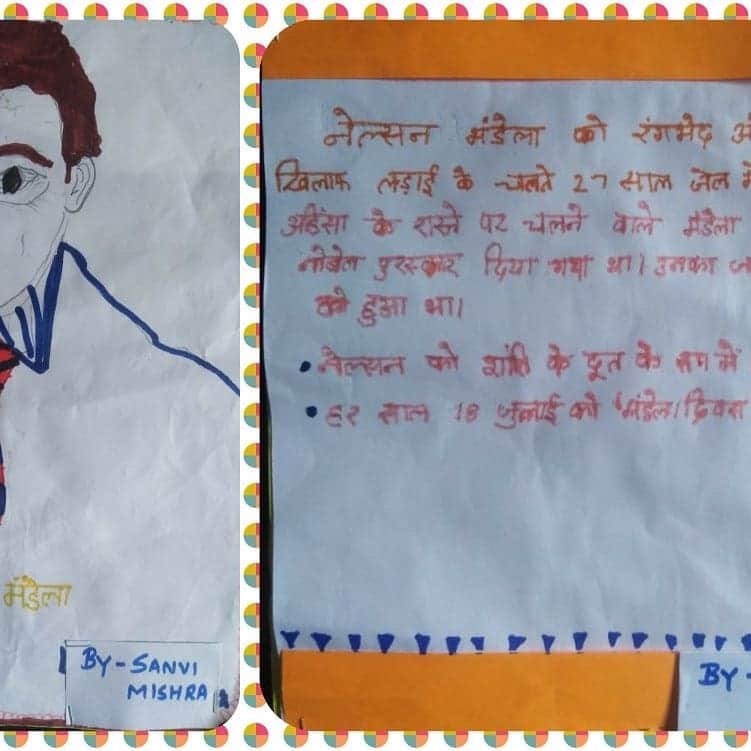 मंडेला
BY - SANVI
MISHRA
नेल्सन मंडेला को रंगभेद
खिलाफ लड़ाई के चलते 27 साल जेल में
अहिंसा के रास्ते पर चलने वाले मंडेला
नोबेल पुरस्कार दिया गया था। उनका
को हुआ था।
• नेल्सन को शांति के दूत के रूप में
• हर साल 18 जुलाई को 'मंडेला दिवस
BY -